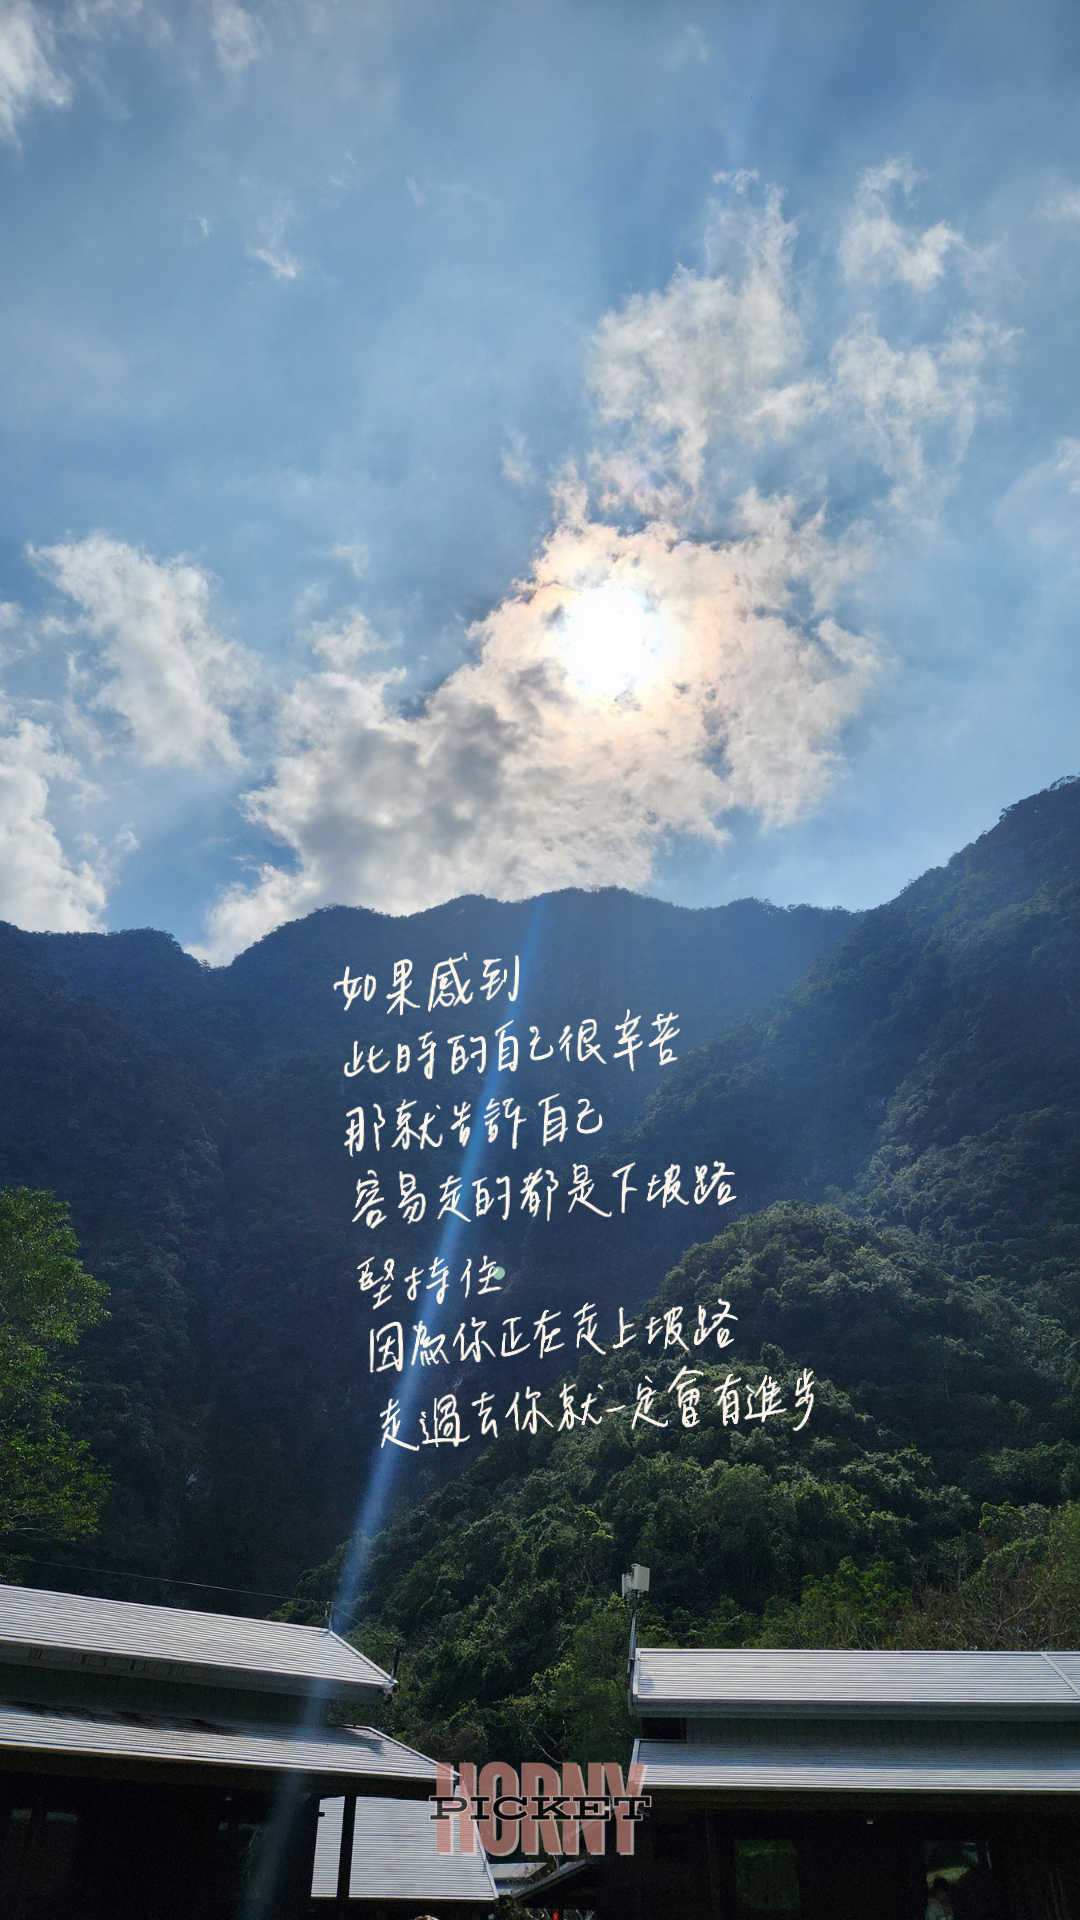 如果感到
此時的自己很辛苦
那就告訴自己
容易走的都是下坡路
堅持住
因為你正在走上坡路
走過去你就一定會有進步
HORNY
PICKET